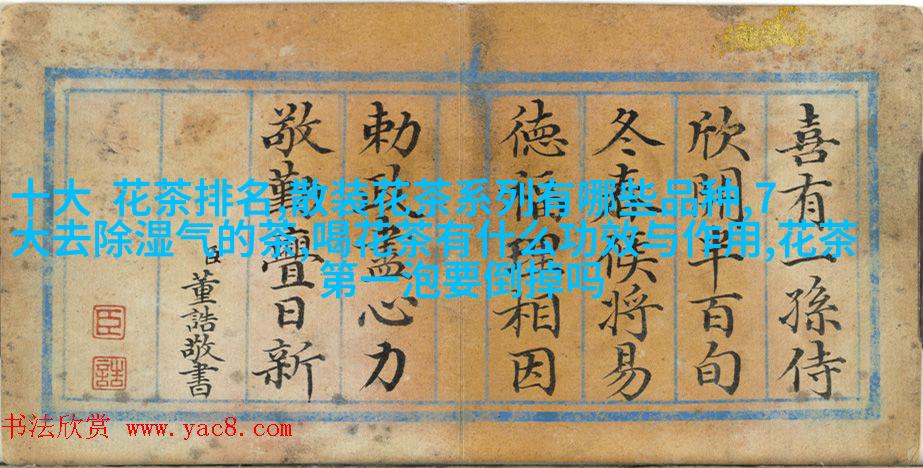 十大 花茶排名,散装花茶系列有哪些品种,7
大去除湿气的茶,喝花茶有什么功效与作用,花茶
第一泡要倒掉吗
喜有一孫侍
欣開早百旬
冬候將易
徳福理相因
勅盡心力
敬勤亹日新
臣董誥敬書
臣
誥
书法欣赏 www.yac8.com